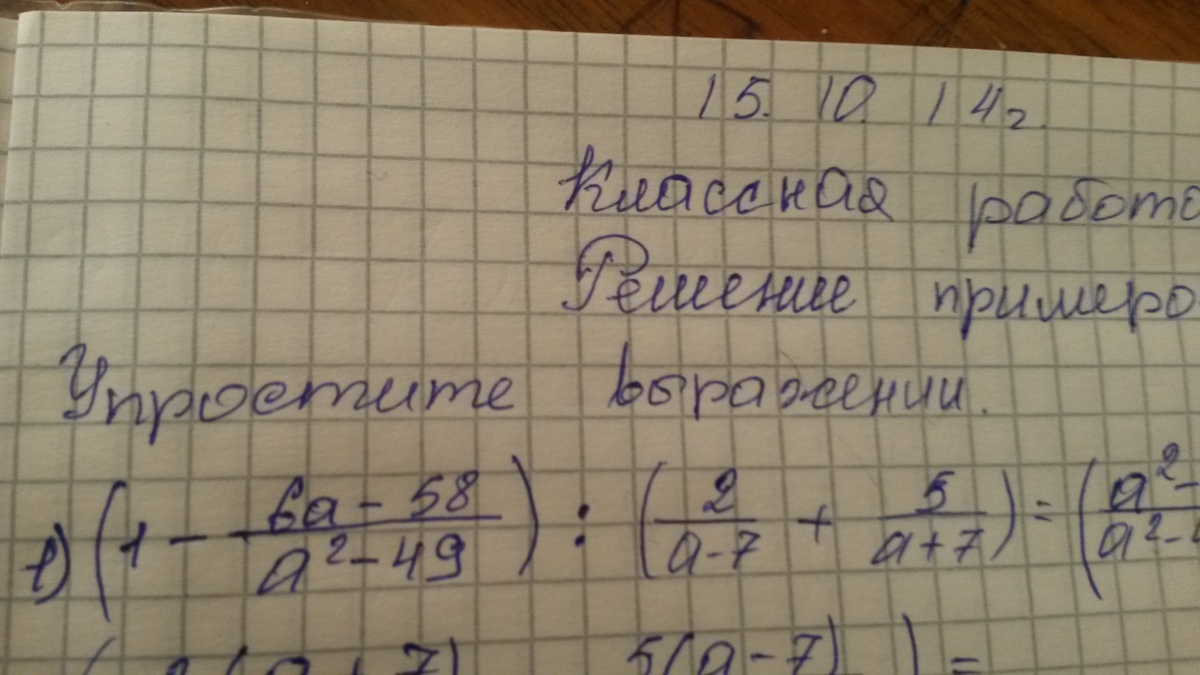 15. 10. 14г.
Классная работа
Решение примеро
Упростите выражении.
1) (1 - (6a - 58)/(a² - 49)) : (2/(a - 7) + 5/(a + 7)) = (a² -/a² - 4
5(a - 7) ) =